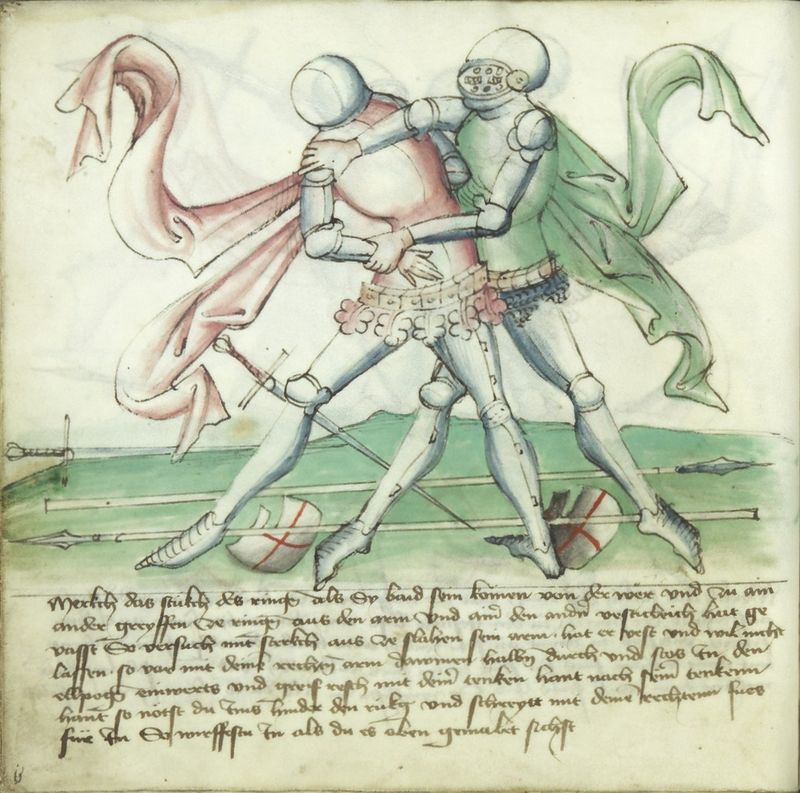 Merkch das stukch des rings als Sy baid sein komen von der wer und zu ain
ander greyffen ze ringen aus den arm und ainer den andern vestickleich hat ge
vasst So versuch mit sterkch aus ze slahen sein arm hat er vest und wil nicht
lassen so var mit deim rechten arm Innwendig halben durch und stos In den
elpogen einwerts und greif resch mit deim tenken hant nach seim tenkenn
hant so nötst du Ims hinder den rukg und schreytt mit deim rechtenn fues
für In So wirffestu In als du es oben gemalet sichst